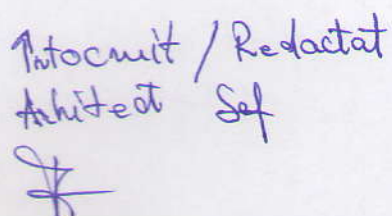 Întocmit / Redactat
Arhitect Șef